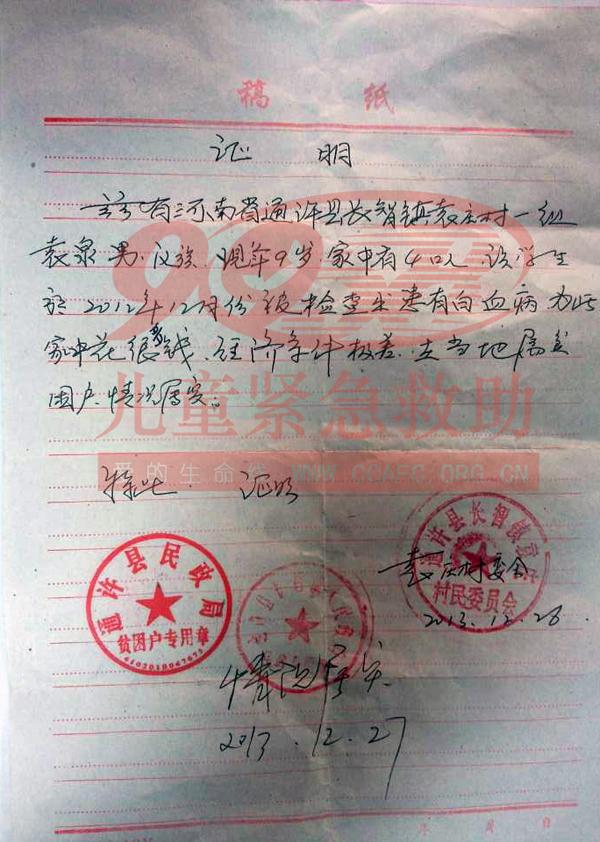 稿 纸
证 明
兹有河南省通许县长智镇袁庄村一组
袁泉 男 汉族 现年9岁 家中有4口人 该学生
於2012年12月份被检查出患有白血病 为此
家中花很多钱 经济条件极差 在当地属贫
困户 情况属实。
特此 证明
儿童紧急救助
爱的生命线 WWW.CCAFC.ORG.CN
通许县长智镇袁庄
村民委员会
袁庄村委会
2013.12.26.
通许县民政局
贫困户专用章
4102010047675
情况属实
2013.12.27
年 月 日